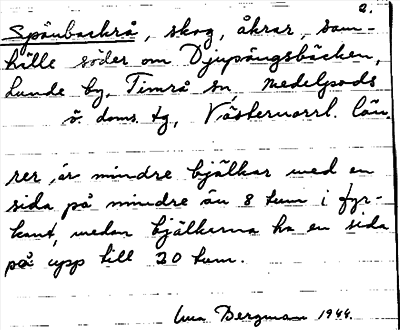 2.
Spånbackrå, skog, åkrar, sam-
hälle söder om Djupängsbäcken,
Lunde by, Timrå sn Medelpads
ö. doms. tg, Västernorrl. län.
rer, är mindre bjälkar med en
sida på mindre än 8 tum i fyr-
kant, medan bjälkarna ha en sida
på upp till 20 tum.
Bergman 1944.